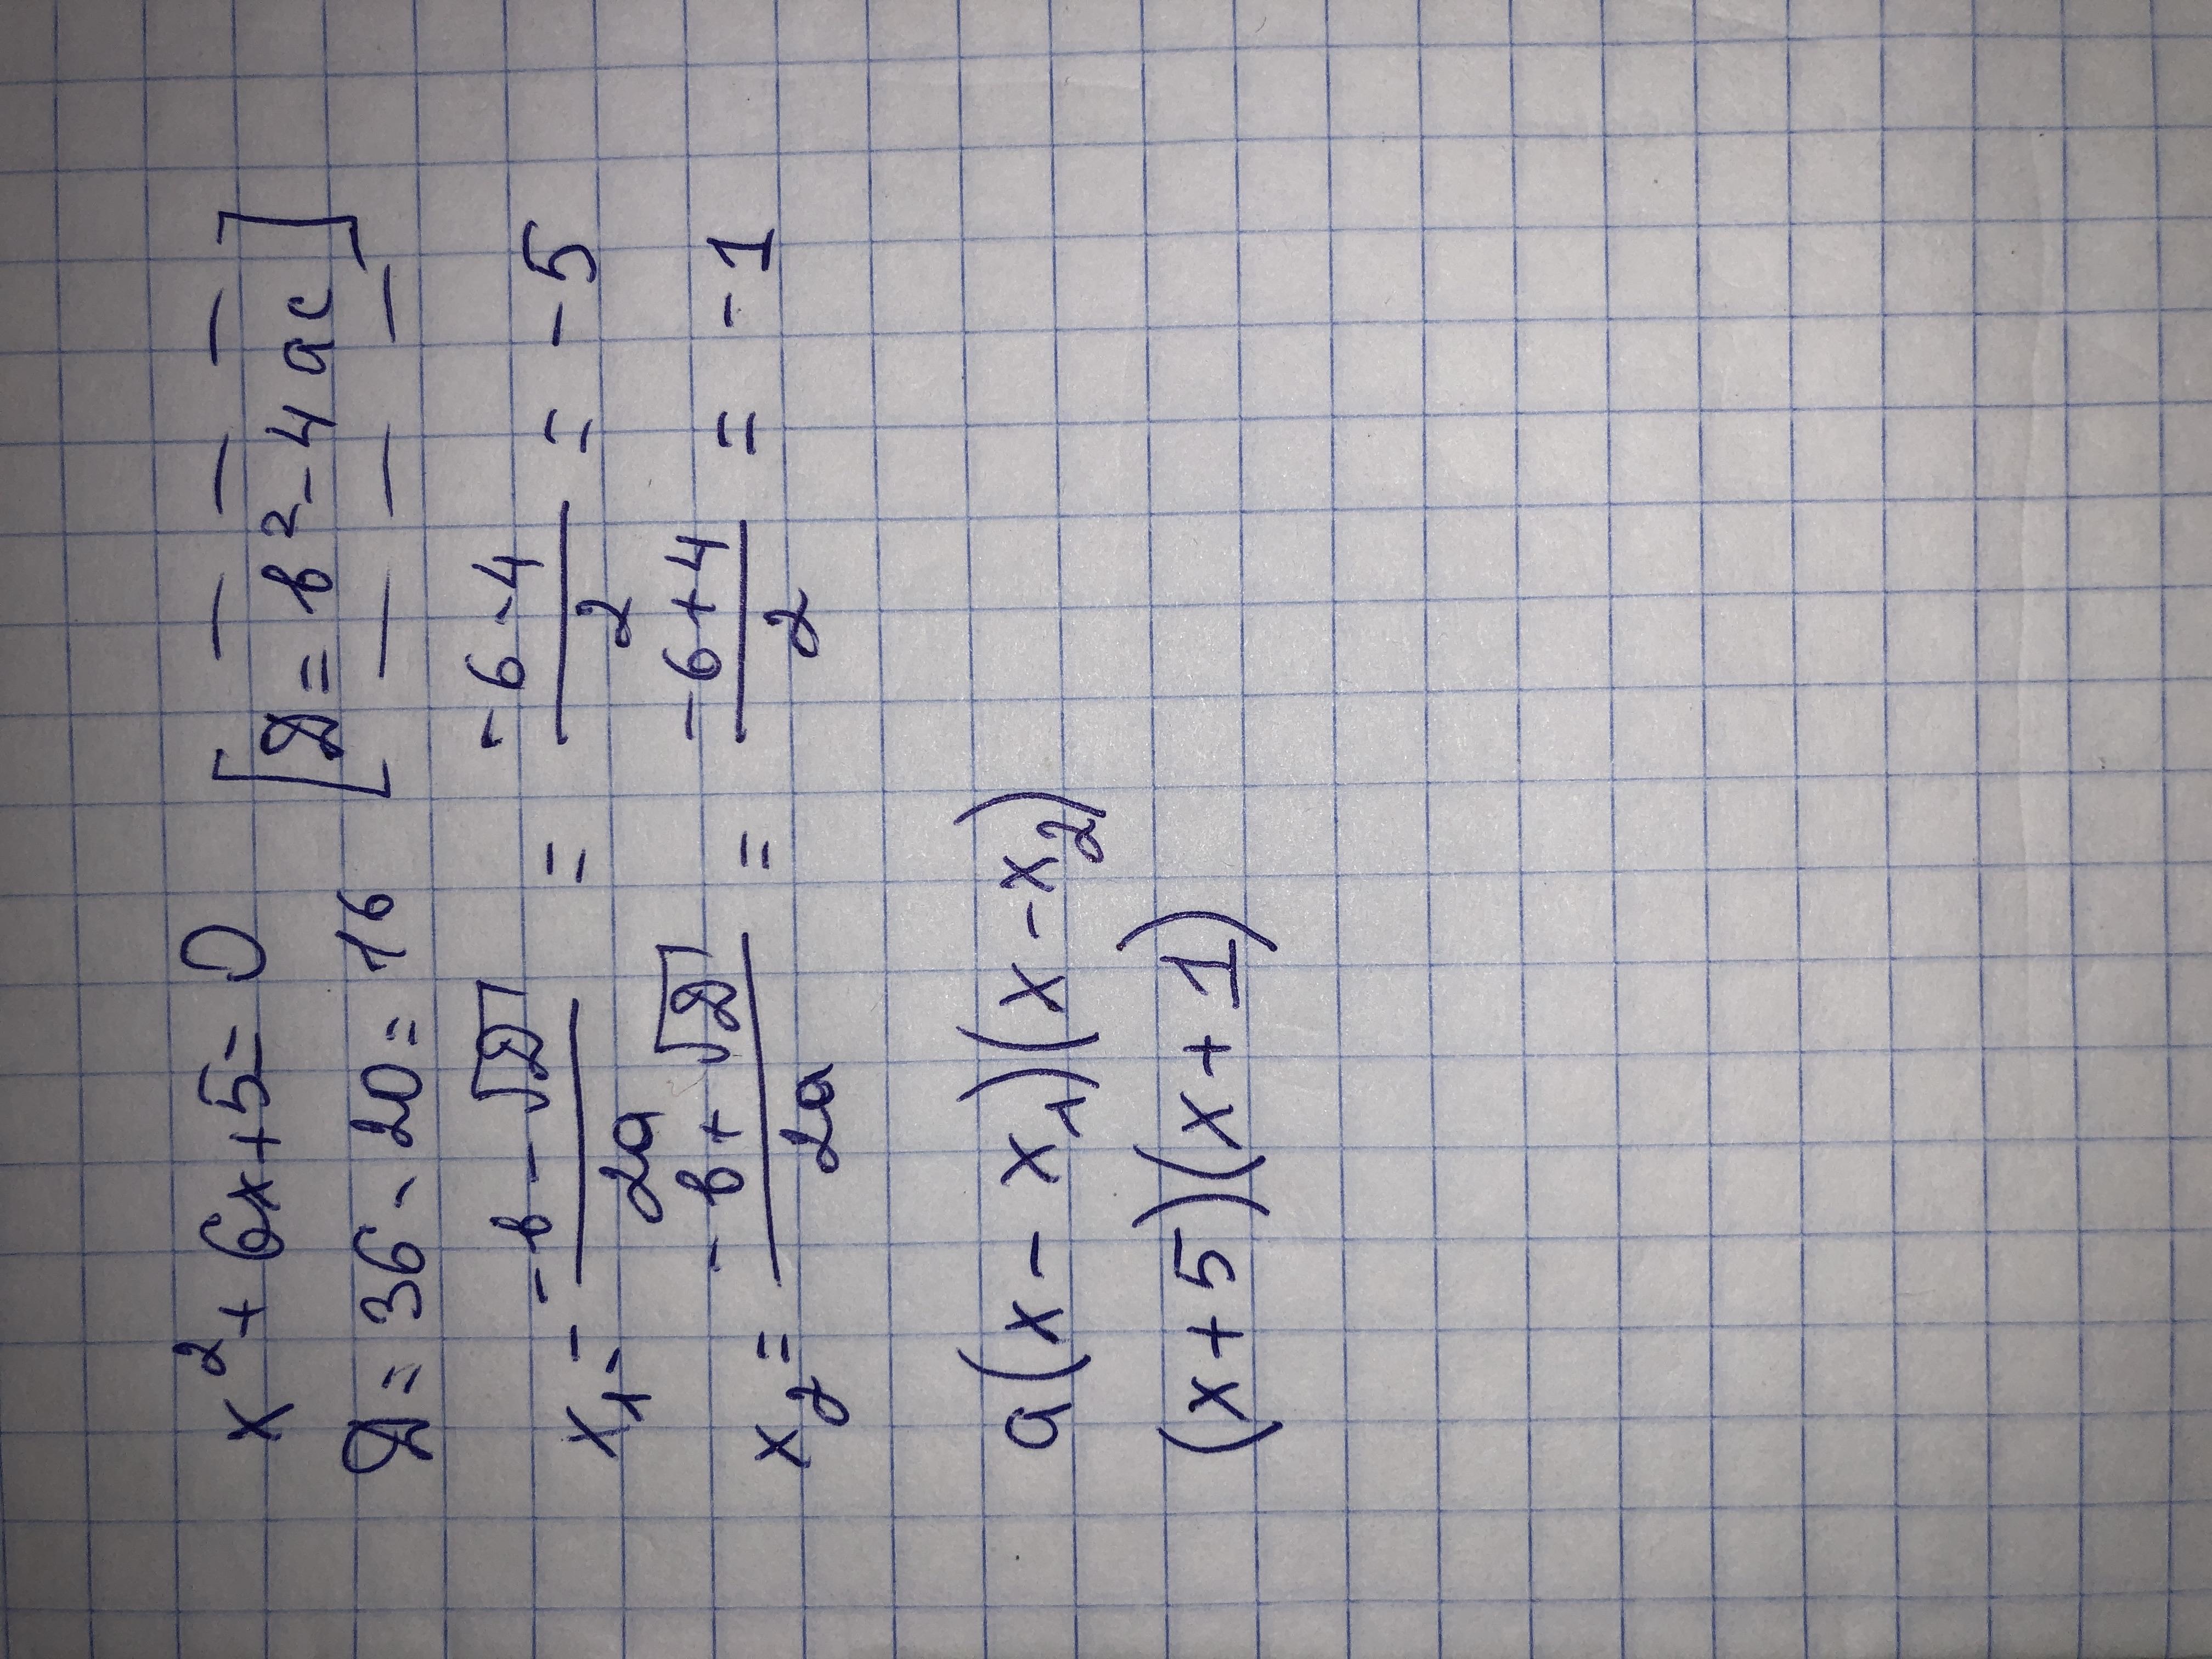 x² + 6x + 5 = 0
D = 36 - 20 = 16 [D = b² - 4ac]
x₁ = (-b - √D)/2a = (-6 - 4)/2 = -5
x₂ = (-b + √D)/2a = (-6 + 4)/2 = -1
a(x - x₁)(x - x₂)
(x + 5)(x + 1)